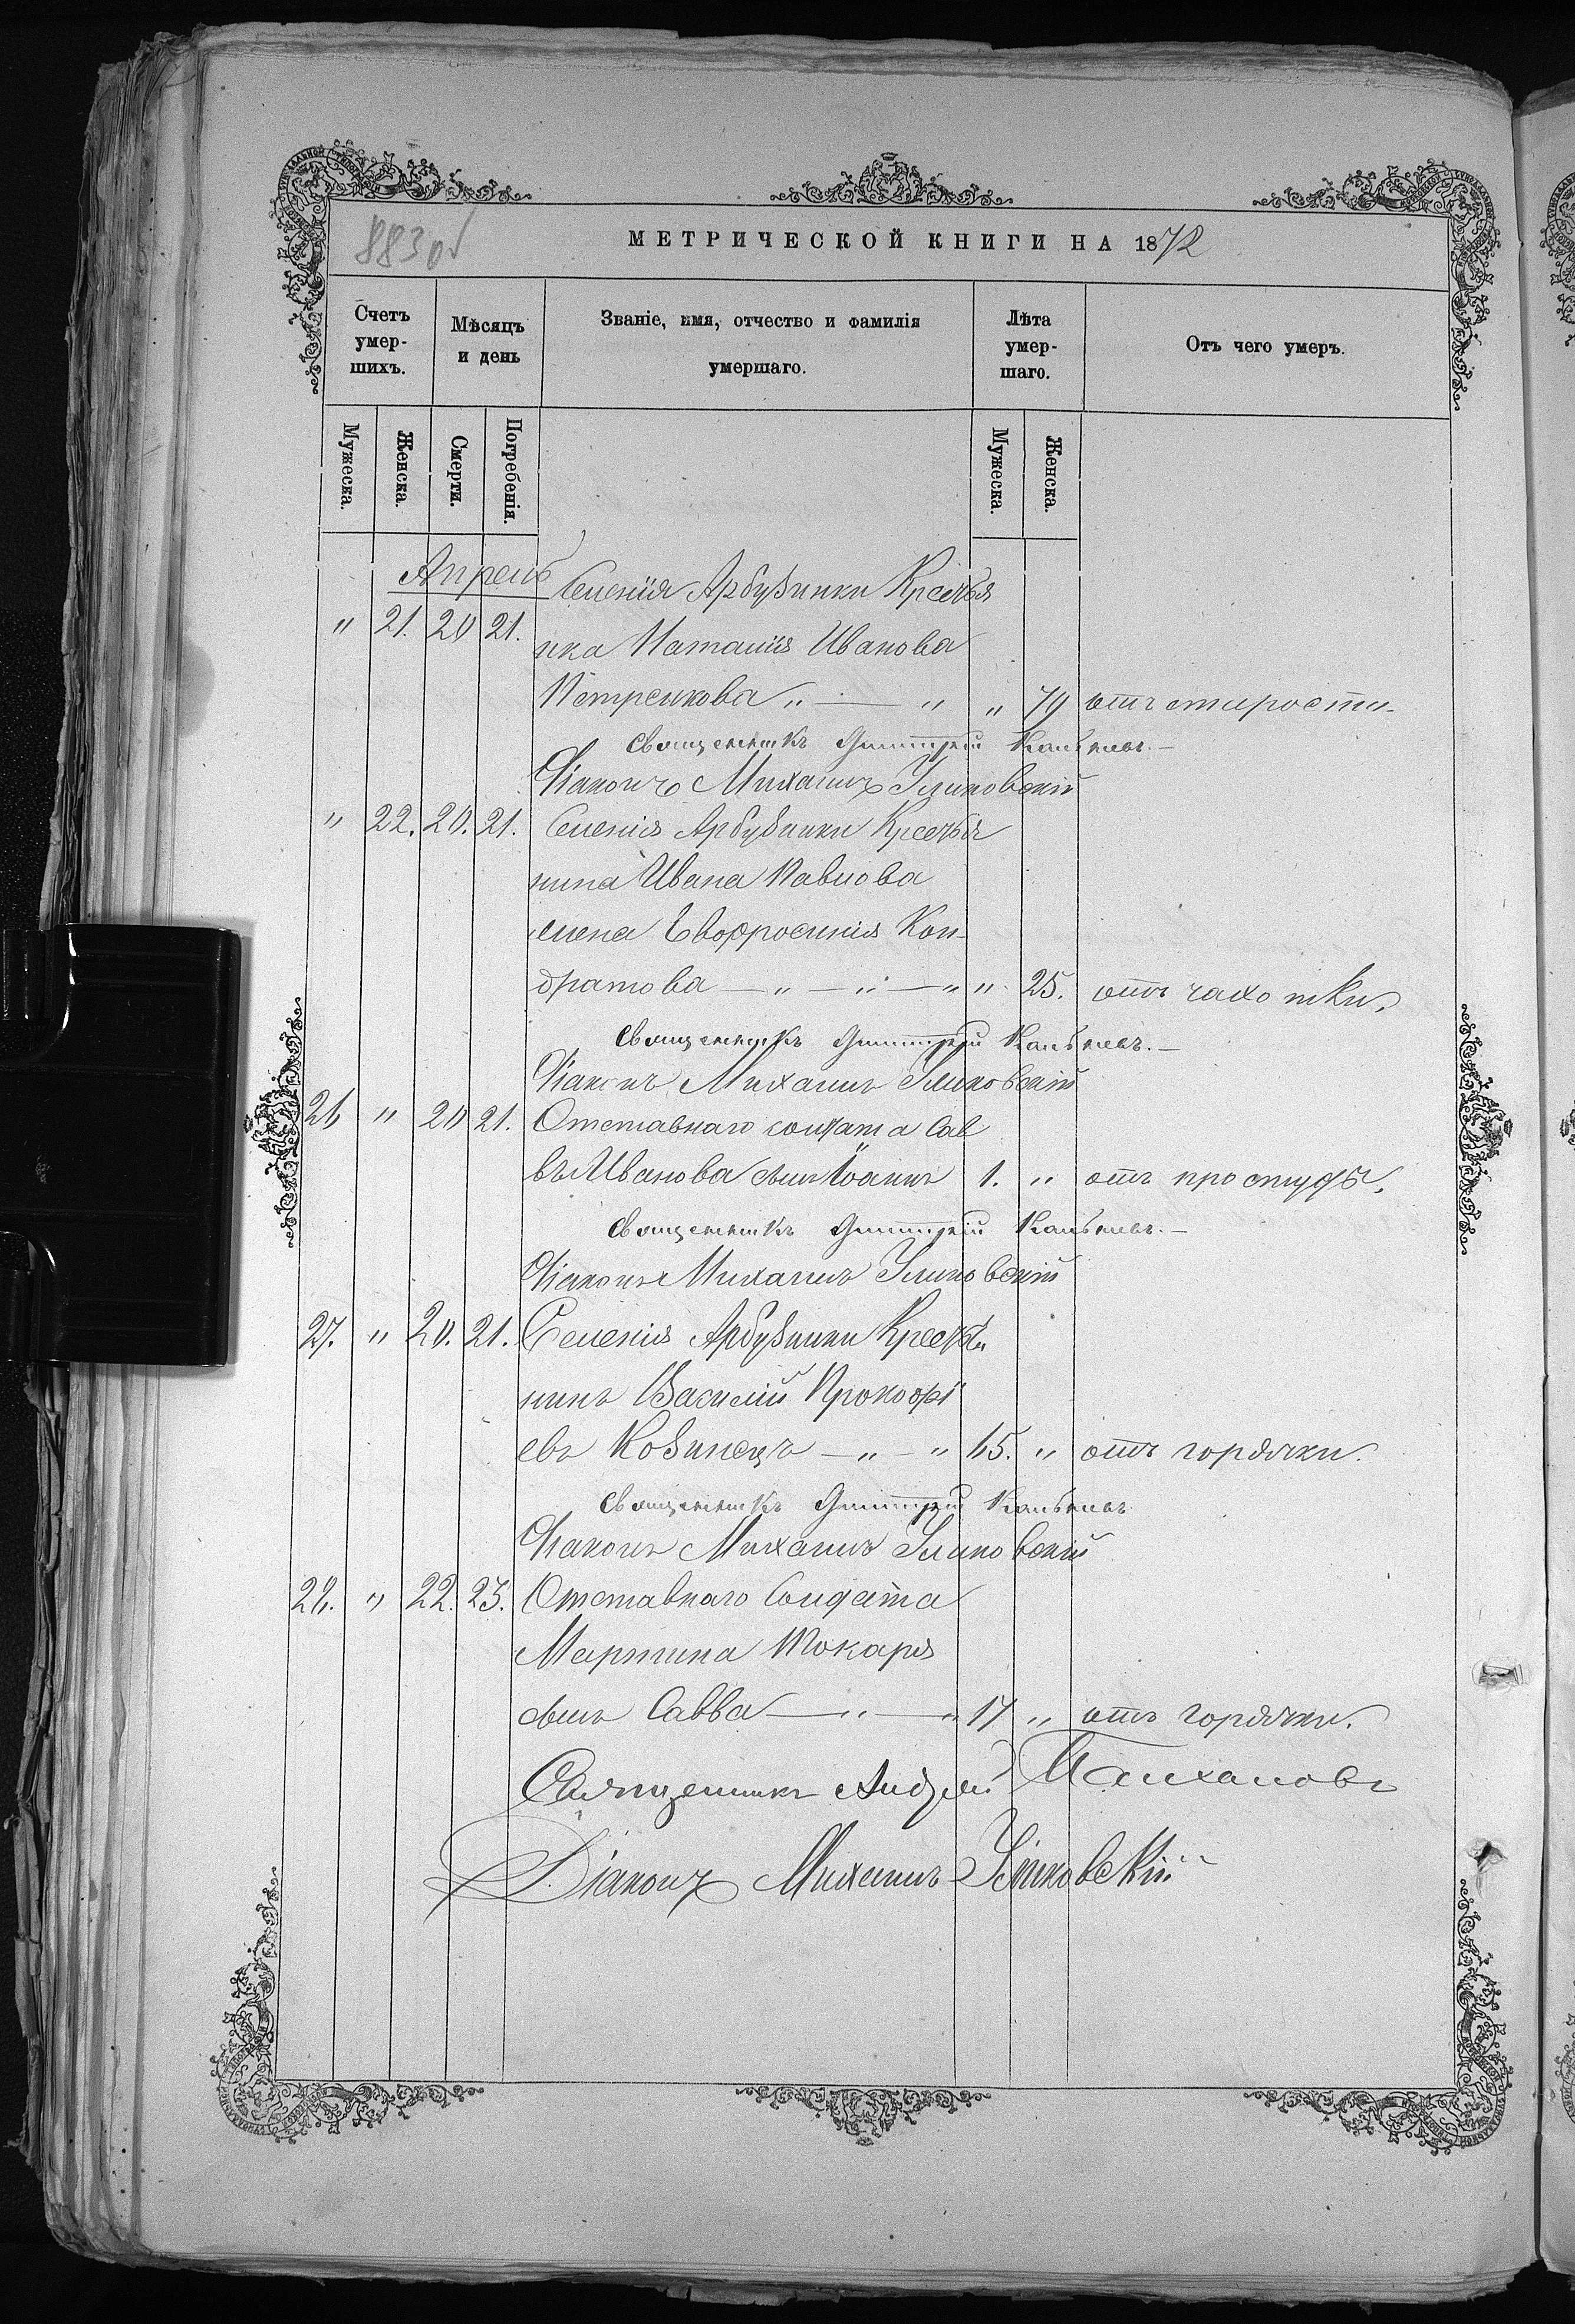 883 об
МЕТРИЧЕСКОЙ КНИГИ НА 1872
Счетъ умер-шихъ.
Мѣсяцъ и день
Званіе, имя, отчество и фамилія умершаго.
Лѣта умер-шаго.
Отъ чего умеръ.
Мужеска.
Женска.
Смерти.
Погребенія.
Мужеска.
Женска.
Апрель
Селенія Арбузинки Крестья
" 21. 20 21. нка Наталия Иванова
Петренкова " — " " 79 отъ старости
Священникъ Димитрій
Діаконъ Михаилъ
" 22. 20. 21. Селенія Арбузинки Крестья
нина Ивана Павлова
жена Евфросинія Кон-
дратова — " — " — " " 25. отъ чахотки.
Священникъ Димитрій
Діаконъ Михаилъ
26 " 20 21. Отставнаго солдата Сав
вы Иванова сынъ Іоаннъ 1. " отъ простуды.
Священникъ Димитрій
Діаконъ Михаилъ
27. " 20. 21. Селенія Арбузинки Крестья
нинъ Василій Прокофі
евъ Козинецъ — " — " 45. " отъ горячки.
Священникъ Димитрій
Діаконъ Михаилъ
28. " 22. 23. Отставнаго Солдата
Мартина Токаря
сынъ Савва — " — " 17 " отъ горячки.
Священникъ Андрей
Діаконъ Михаилъ